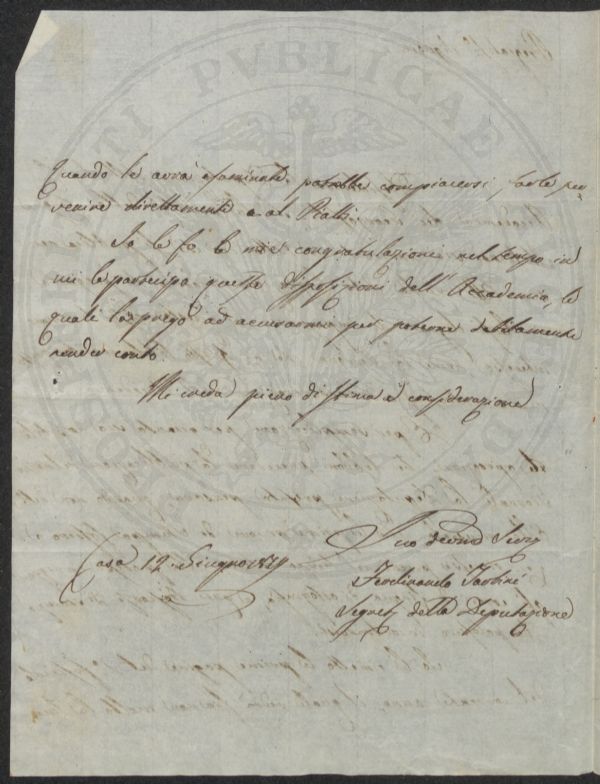 Quando le avrà esaminate potrebbe compiacersi farle per=
venire direttamente a
Io le fo le mie congratulazioni nel tempo in
cui le partecipo queste disposizioni dell'Accademia, le
quali la prego ad accusarmi per poterne debitamente
render conto.
Mi creda pieno di stima e considerazione
Casa 12. Giugno
Suo
Ferdinando Tartini
Segret. della Deputazione
PUBLICAE